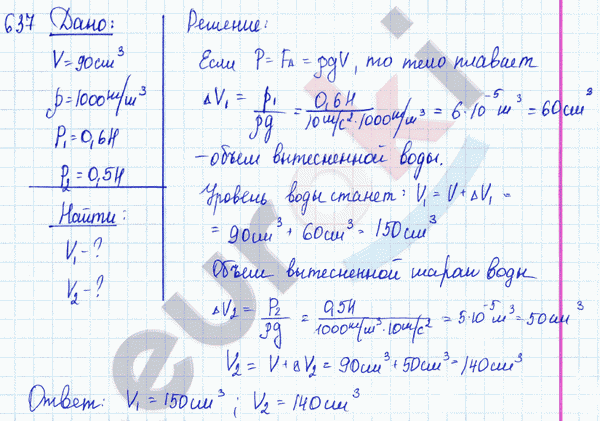 637 Дано:
V = 90см³
ρ = 1000кг/м³
P₁ = 0,6Н
P₂ = 0,5Н
Найти:
V₁ - ?
V₂ - ?
Решение:
Если P = F_A = ρgV, то тело плавает
ΔV₁ = P₁/ρg = 0,6Н/10м/с²·1000кг/м³ = 6·10⁻⁵ м³ = 60см³
- объем вытесненной воды.
Уровень воды станет: V₁ = V + ΔV₁ =
= 90см³ + 60см³ = 150см³
Объем вытесненной шаром воды
ΔV₂ = P₂/ρg = 0,5Н/1000кг/м³·10м/с² = 5·10⁻⁵ м³ = 50см³
V₂ = V + ΔV₂ = 90см³ + 50см³ = 140см³
Ответ: V₁ = 150см³ ; V₂ = 140см³
euroki